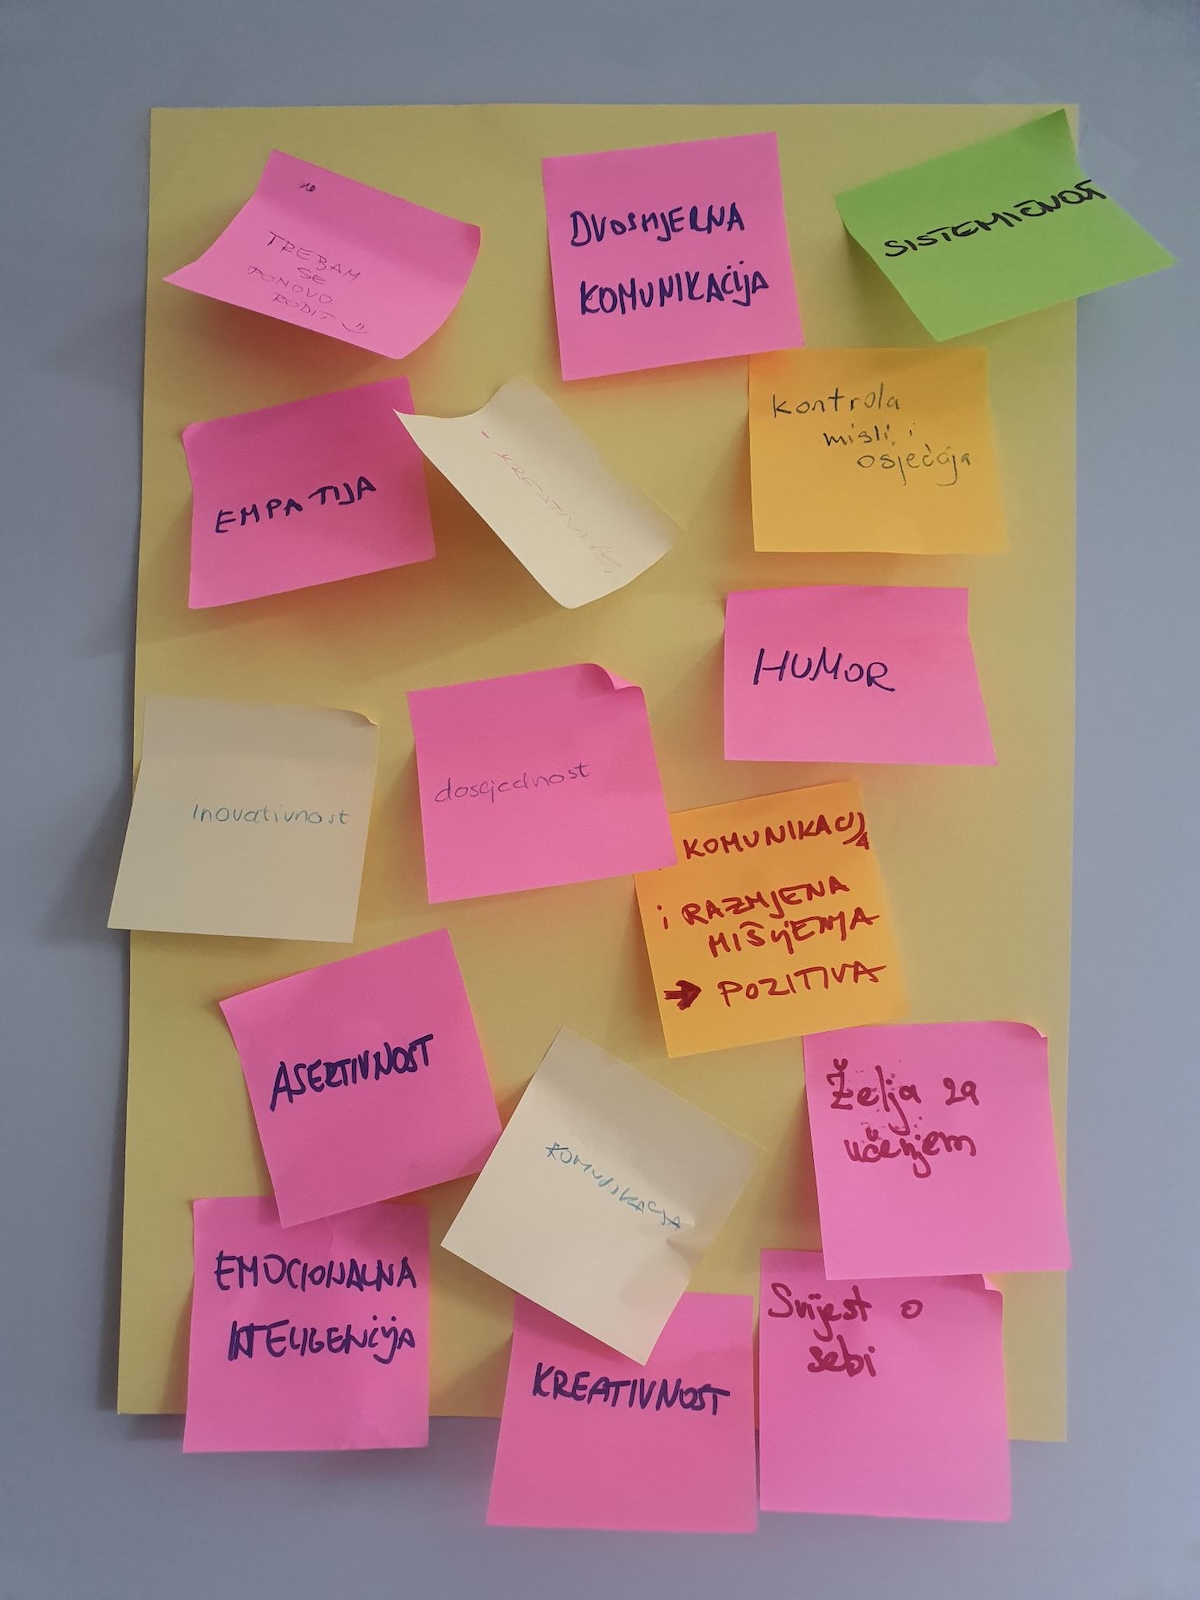 TREBAM
SE
PONOVO
RODIT
DVOSMJERNA
KOMUNIKACIJA
SISTEMIČNOST
EMPATIJA
- KREATIVNOST
Kontrola
misli i
osjećaja
HUMOR
Inovativnost
dosljednost
KOMUNIKACIJA
i RAZMJENA
MIŠLJENJA
→ POZITIVA
ASERTIVNOST
KOMUNIKACIJA
Želja za
učenjem
EMOCIONALNA
INTELIGENCIJA
KREATIVNOST
Svijest o
sebi